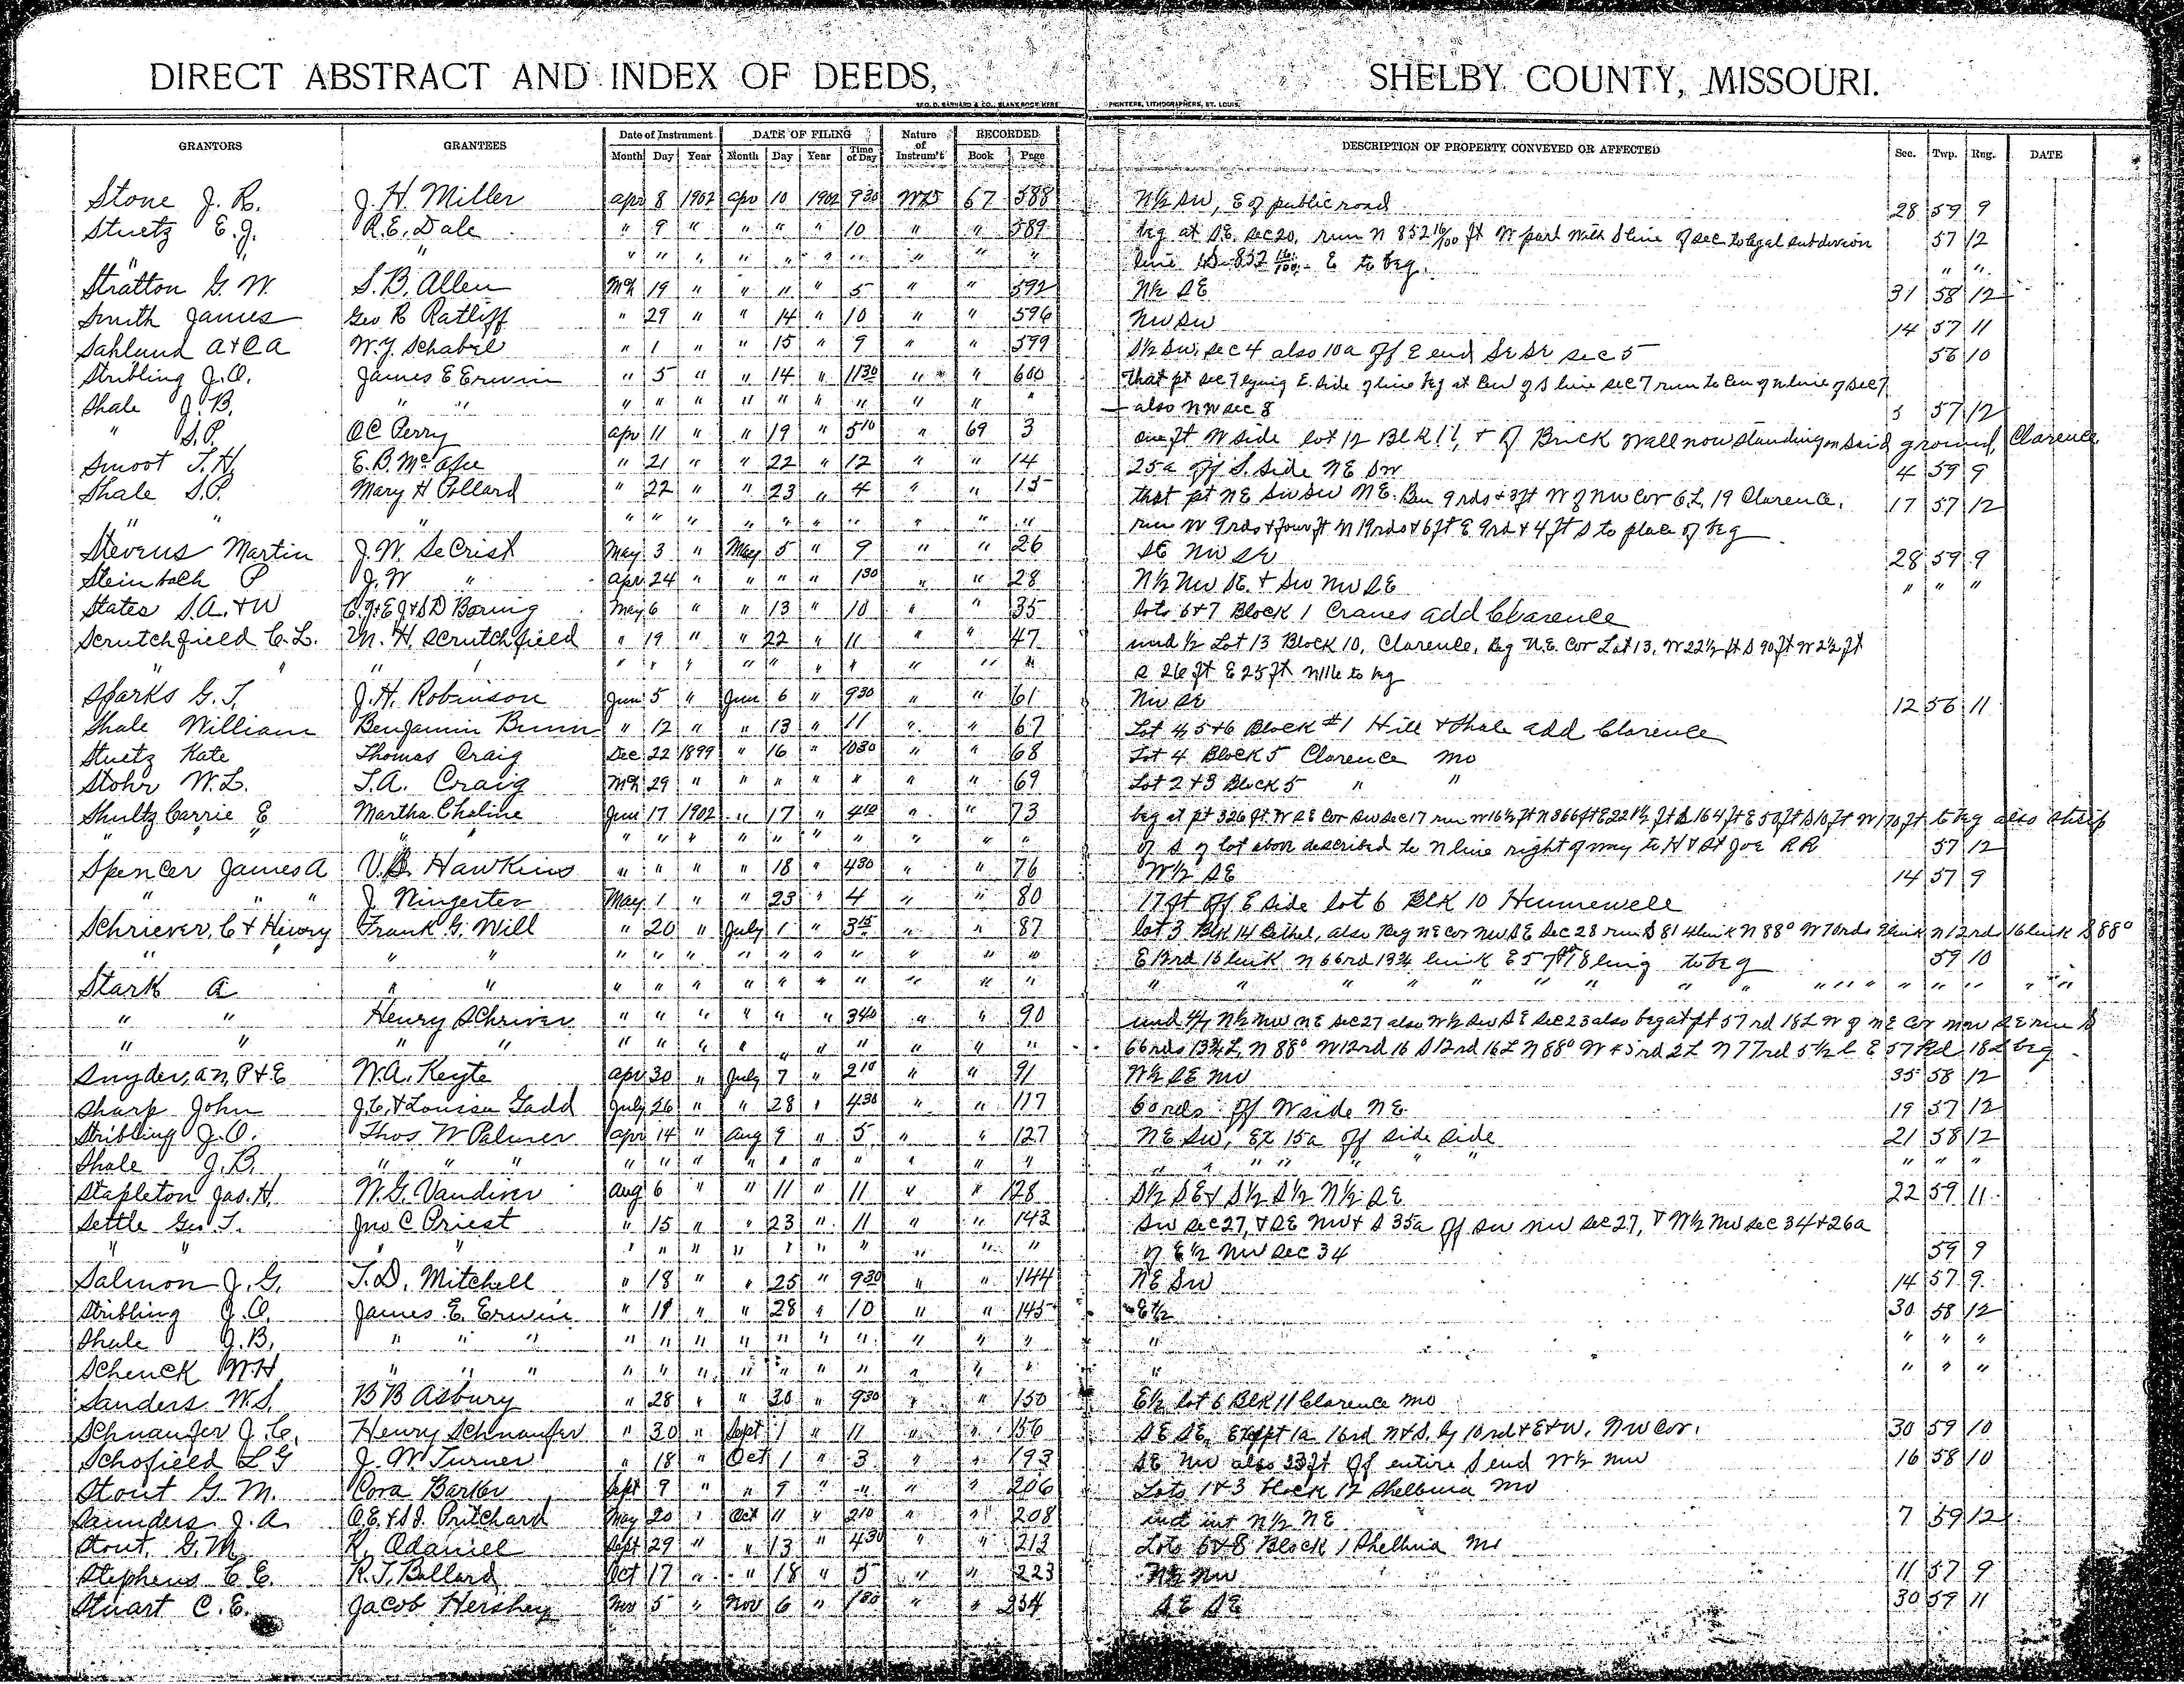 DIRECT ABSTRACT AND INDEX OF DEEDS, SHELBY COUNTY, MISSOURI.
GEO. D. BARNARD & CO., BLANK BOOK MFRS PRINTERS, LITHOGRAPHERS, ST. LOUIS.
GRANTORS GRANTEES Date of Instrument DATE OF FILING Nature of Instrum't RECORDED DESCRIPTION OF PROPERTY CONVEYED OR AFFECTED Sec. Twp. Rng. DATE
Month Day Year Month Day Year Time of Day Book Page
Stone J. R. J. H. Miller Apr 8 1902 Apr 10 1902 930 WD 67 588 N½ SW, E of public road 28 59 9
Stuetz E. J. R. E. Dale " 9 " " " " 10 " " 589 beg at SE. sec 20, run N 852 16/100 ft W parl with S line of sec to legal subdivision 57 12
" " " " " " " " " " " " line S 852 16/100 E to beg. " "
Stratton G. W. S. B. Allen Mch 19 " " 11 " 5 " " 592 N½ SE 31 58 12
Smith James Geo R Ratliff " 29 " " 14 " 10 " " 596 NW SW 14 57 11
Sahlund A & C A W. J. Schabel " 1 " " 15 " 9 " " 599 S½ SW, sec 4 also 10a off E end SE SE sec 5 56 10
Stribling J. O. James E Erwin " 5 " " 14 " 1130 " " 600 That pt sec 7 lying E. side of line beg at Cen of S line sec 7 run to Cen of N line of sec 7
Shale J. B. " " " " " " " " " " " " also NW sec 8 5 57 12
" S. P. O C Perry Apr 11 " " 19 " 510 " 69 3 one ft W side lot 12 Blk 11, & of Brick wall now standing on said ground, Clarence
Smoot T. H. E. B. McAfee " 21 " " 22 " 12 " " 14 25a off S. side NE SW 4 59 9
Shale S. P. Mary H Pollard " 22 " " 23 " 4 " " 15 that pt NE SW SW NE. Ben 9 rds & 3 ft W of NW Cor 6 L, 19 Clarence. 17 57 12
" " " " " " " " " " " " " run W 9 rds & four ft N 19 rds & 6 ft E 9 rd & 4 ft S to place of beg
Stevens Martin J. W. SeCrist May 3 " May 5 " 9 " " 26 SE NW SE 28 59 9
Steinbach P J. W " Apr 24 " " " " 130 " " 28 N½ NW SE. & SW NW SE " " "
States S. A. & W C. J & E J & S D Boring May 6 " " 13 " 10 " " 35 lots 6 & 7 Block 1 Cranes add Clarence
Scrutchfield C. L. M. H. Scrutchfield " 19 " " 22 " 11 " " 47 und ½ Lot 13 Block 10, Clarence, Beg N.E. Cor Lot 13, W 22½ ft S 90 ft W 2½ ft
" " " " " " " " " " " " " " S 26 ft E 25 ft N 116 to beg
Sparks G. T. J. H. Robinson June 5 " June 6 " 930 " " 61 NW SE 12 56 11
Shale William Benjamin Bunn " 12 " " 13 " 11 " " 67 Lot 4, 5 & 6 Block #1 Hill & Shale add Clarence
Stuetz Kate Thomas Craig Dec 22 1899 " 16 " 1030 " " 68 Lot 4 Block 5 Clarence Mo
Stohr W. L. T. A. Craig Mch 29 " " " " " " " 69 Lot 2 & 3 Block 5 " "
Shultz Carrie E Martha Choline June 17 1902 " 17 " 410 " " 73 beg at pt 326 ft. W SE Cor SW sec 17 run W 16½ ft N 366 ft E 221½ ft S 164 ft E 50 ft S 10 ft W 170 ft to beg also strip
" " " " " " " " " " " " " of S of lot above described to N line right of way to H & St Joe RR 57 12
Spencer James A V. B. Hawkins " " " " 18 " 430 " " 76 W½ SE 14 57 9
" " " J Ningerter May 1 " " 23 " 4 " " 80 17 ft off E side lot 6 Blk 10 Hunnewell
Schriever, C & Henry Frank G. Will " 20 " July 1 " 315 " " 87 lot 3 Blk 14 Bethel, also Beg NE Cor NW SE Sec 28 run S 81 4 link N 88° W 70 rds link N 12 rd 16 link S 88°
" " " " " " " " " " " " E 13 rd 16 link N 66 rd 13¾ link E 57 rd 18 ling to beg 59 10
Stark A " " " " " " " " " " " " " " " " " " " " " " " " " "
" " Henry Schriver " " " " " " 340 " " 90 und 4/7 N½ NW NE Sec 27 also W½ SW SE Sec 23 also beg at pt 57 rd 18 L W of NE Cor NW SE run S
" " " " " " " " " " " " " " 66 rds 13¾ L, N 88° W 12 rd 16 S 12 rd 16 L N 88° W 45 rd 2 L N 77 rd 5½ L E 57 Rd 18 L beg
Snyder, A N, P & E W. A. Keyte Apr 30 " July 7 " 210 " " 91 W½ SE NW 35 58 12
Sharp John J. C. & Louisa Gadd July 26 " " 28 " 430 " " 117 60 rds off W side NE 19 57 12
Stribling J. O. Thos. W Palmer Apr 14 " Aug 9 " 5 " " 127 NE SW, Ex 15a off side side 21 58 12
Shale J. B. " " " " " " " " " " " " " " " " " " " " "
Stapleton Jas. H. W. G. Vandiver Aug 6 " " 11 " 11 " " 128 S½ SE & S½ S½ N½ SE 22 59 11
Settle Geo T. Jno C Priest " 15 " " 23 " 11 " " 143 SW sec 27, & SE NW & S 35a off SW NW sec 27, & W½ NW sec 34 & 26a
" " " " " " " " " " " " " " of E½ NW Sec 34 59 9
Salmon J. G. T. D. Mitchell " 18 " " 25 " 930 " " 144 NE SW 14 57 9
Stribling J. O. James E. Erwin " 19 " " 28 " 10 " " 145 E½ 30 58 12
Shale J. B. " " " " " " " " " " " " " " " " "
Schenck W. H. " " " " " " " " " " " " " " " " "
Sanders W. S. B B Asbury " 28 " " 30 " 930 " " 150 E½ lot 6 Blk 11 Clarence Mo
Schnaufer J. C. Henry Schnaufer " 30 " Sept 1 " 11 " " 156 SE SE, Except 1a 16 rd N & S. by 10 rd & E & W. NW Cor. 30 59 10
Schofield L G J. W Turner " 18 " Oct 1 " 3 " " 193 SE NW also 33 ft off entire S end W½ NW 16 58 10
Stout G. M. Cora Barker Sept 9 " " 9 " " " " 206 Lots 1 & 3 block 12 Shelbina Mo
Saunders J. A. O. E. & S J. Pritchard May 20 " Oct 11 " 210 " " 208 und int N½ NE 7 59 12
Stout, G. M. R. Odaniel Sept 29 " " 13 " 430 " " 213 Lots 6 & 8 Block 1 Shelbina Mo
Stephens C. E. R. T. Bollard Oct 17 " " 18 " 5 " " 223 N½ NW 11 57 9
Stuart C. E. Jacob Hershey Nov 5 " Nov 6 " 130 " " 234 SE SE 30 59 11